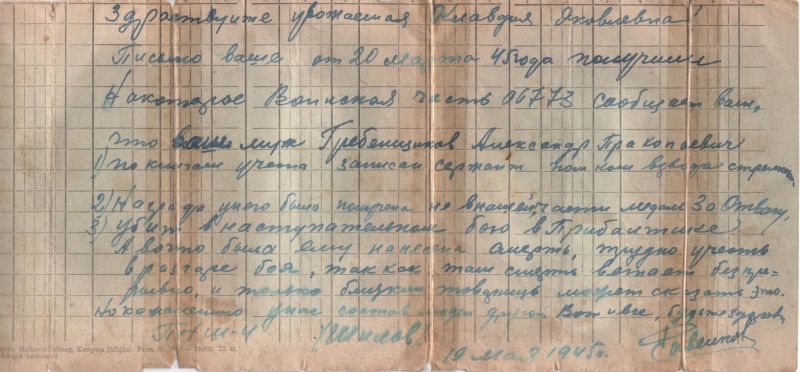 Здраствуите уважаемая Клавдия Яковлевна!
Письмо ваше от 20 марта 45 года получили
На которое Воинская часть 06773 сообщает вам,
что ваш мирж Гребенщиков Александр Пракопьевич
1) по книгам учета записан сержант пом ком взвода
2) Награда унего была получена не внашей части медаль За Отвагу,
3) Убит в наступательном бою в Прибалтике
А вочто была ему нанесена смерть, трудно учесть
вразгаре боя, так как там смерть ветает безпре-
рывно, и только близкий товарищ может сказать это.
Но ксожалению унас состав людей другой Вот и все, будьте здоровы
ПНШ-4 /Шилов/
19 мая 1945 г.